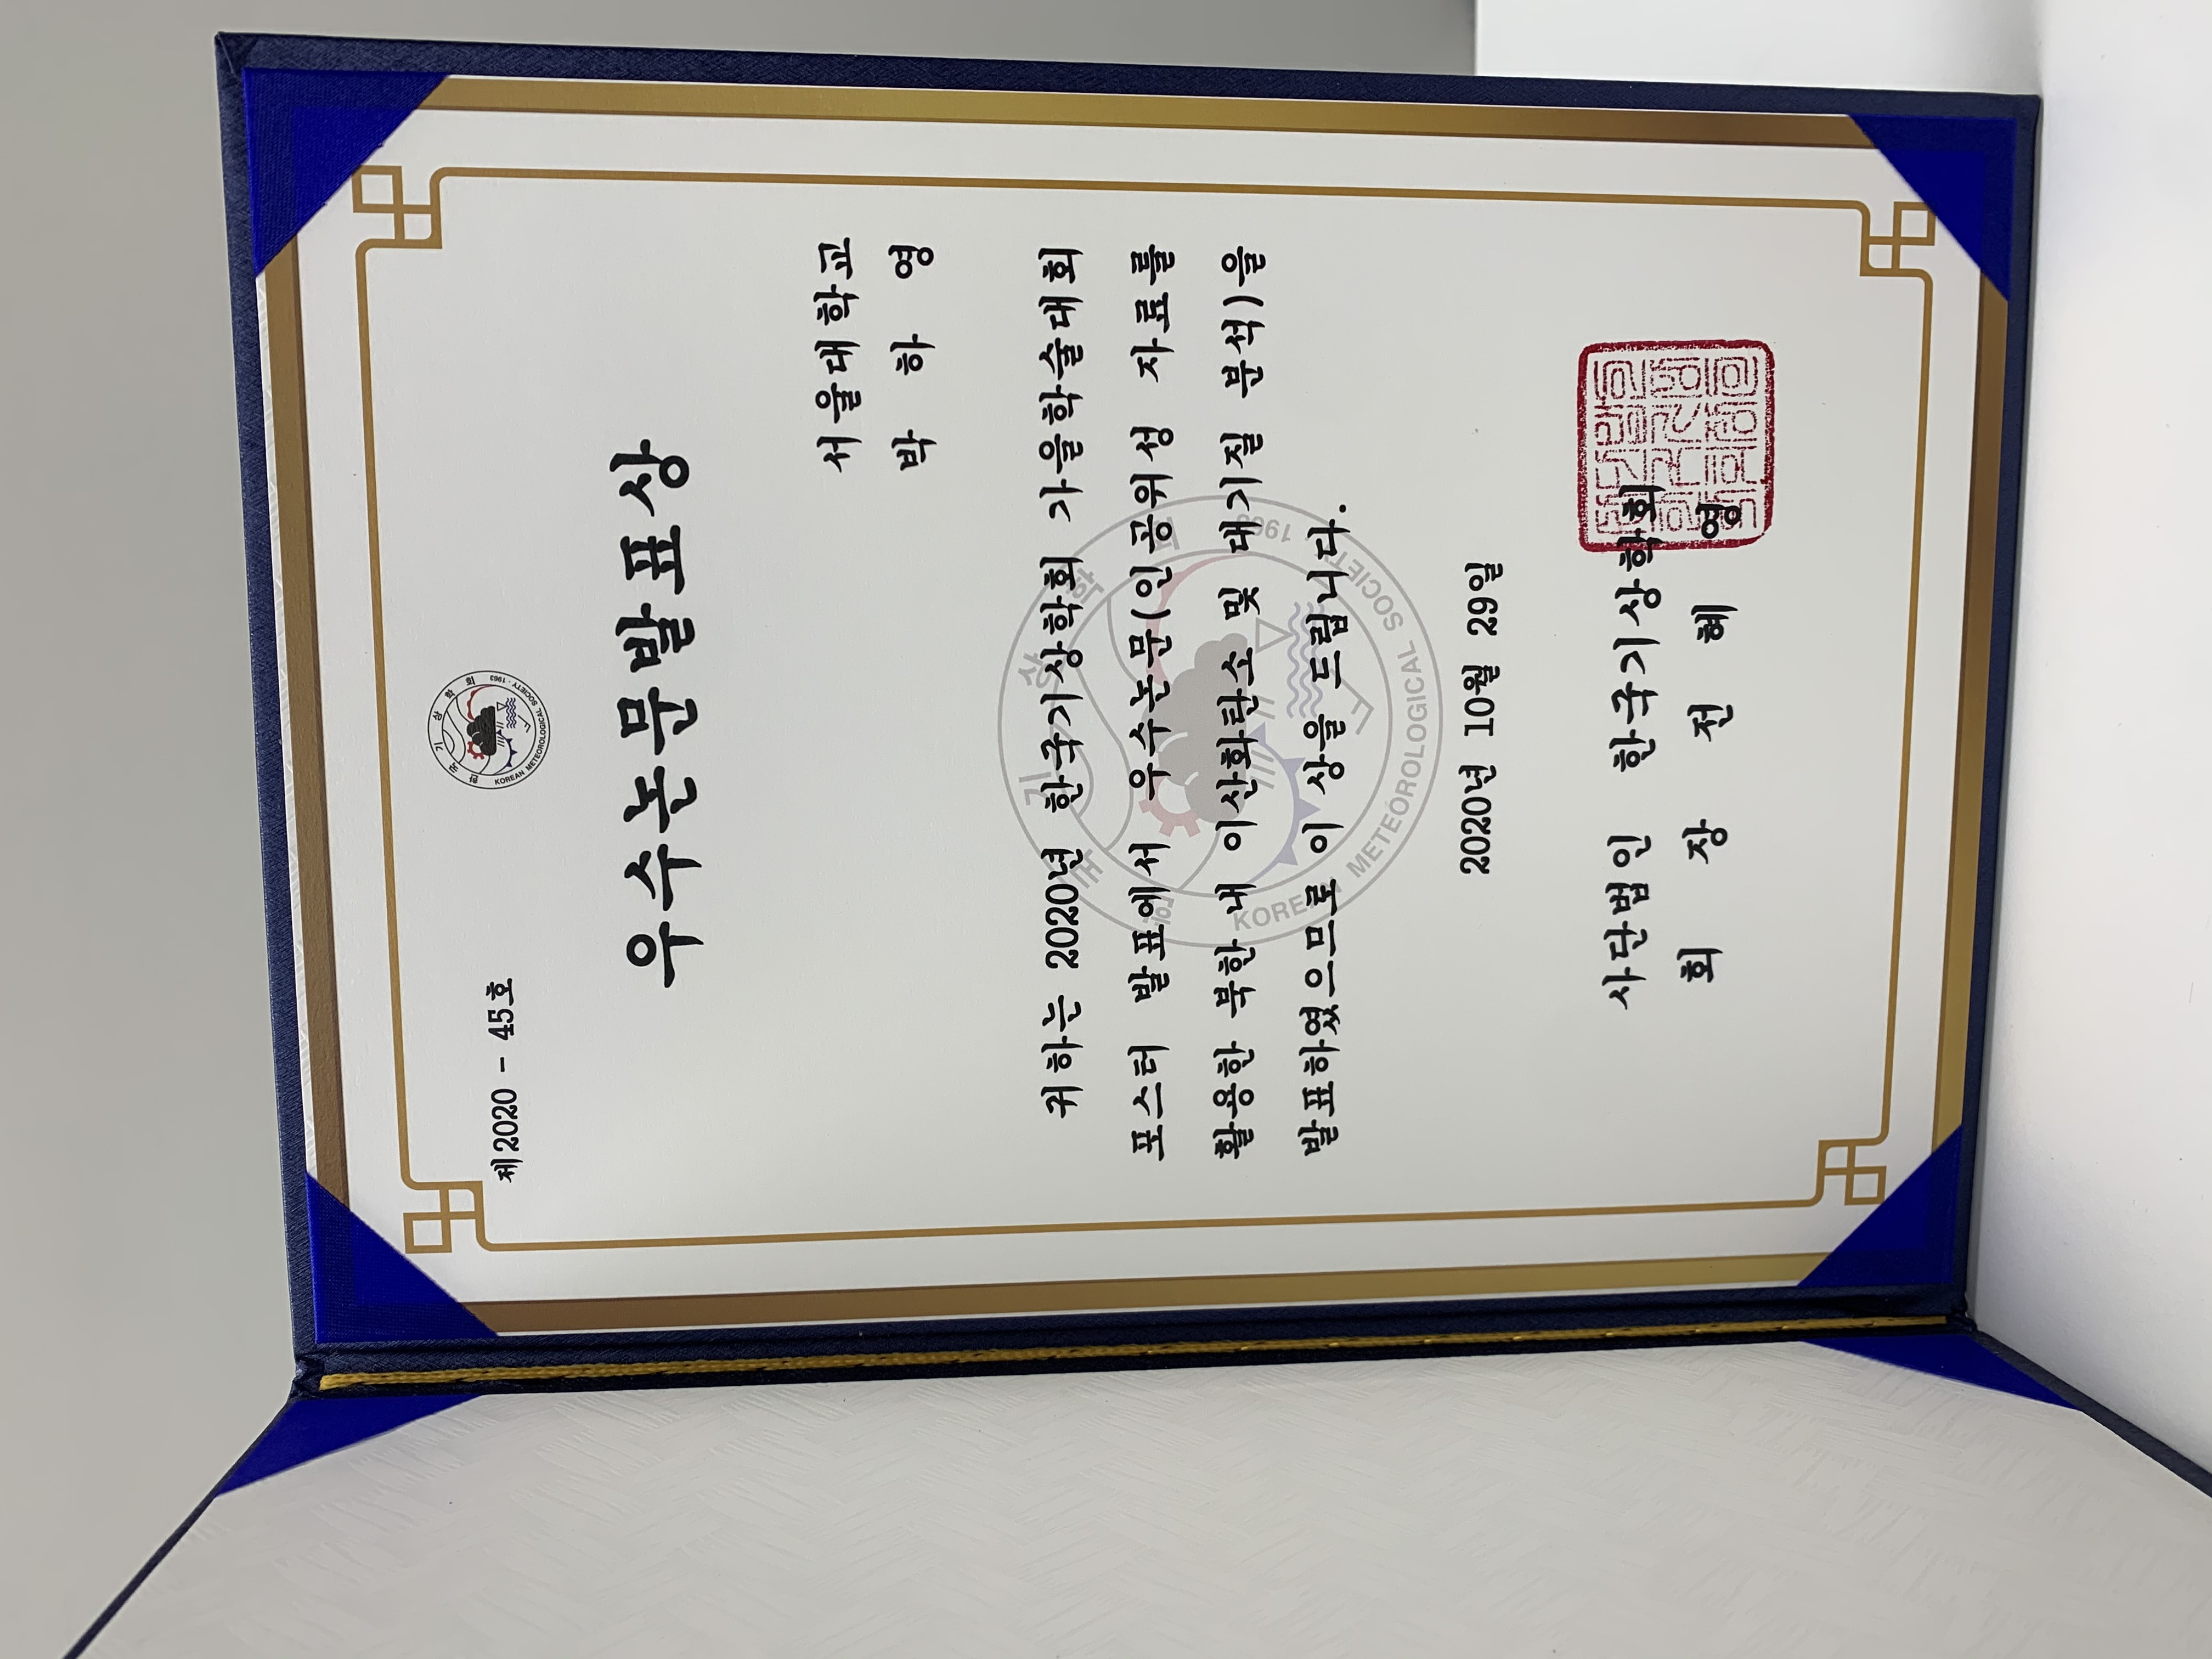 제2020 - 45호
한국기상학회
KOREAN METEOROLOGICAL SOCIETY · 1963
우수논문발표상
서울대학교
박 하 영
귀하는 2020년 한국기상학회 가을학술대회
포스터 발표에서 우수논문(인공위성 자료를
활용한 북한 내 이산화탄소 및 대기질 분석)을
발표하였으므로 이 상을 드립니다.
한국기상학회
KOREAN METEOROLOGICAL SOCIETY 1963
2020년 10월 29일
사단법인 한국기상학회
회 장 전 혜 영